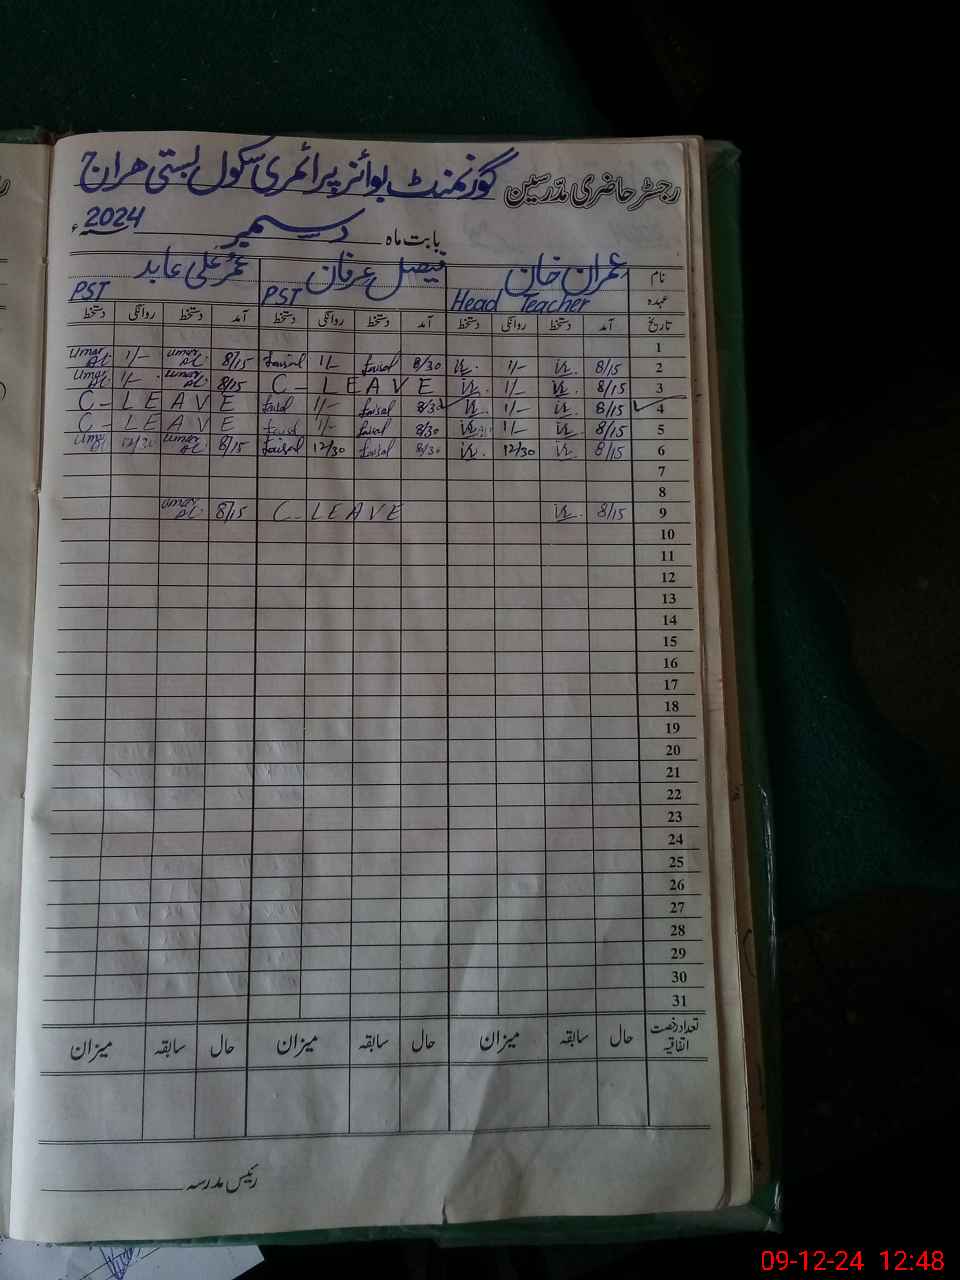 رجسٹر حاضری مدرسین گورنمنٹ بوائز پرائمری سکول بستی ھراج
بابت ماہ دسمبر 2024ء
نام عمران خان فیصل عرفان عمر علی عابد
عہدہ Head Teacher PST PST
تاریخ آمد دستخط روانگی دستخط آمد دستخط روانگی دستخط آمد دستخط روانگی دستخط
1
2 8/15 1/- 8/30 faisal 1/- faisal 8/15 umar 1/- umar
3 8/15 1/- C-LEAVE 8/15 umar 1/- umar
4 8/15 1/- 8/30 faisal 1/- faisal C-LEAVE
5 8/15 1/- 8/30 faisal 1/- faisal C-LEAVE
6 8/15 12/30 8/30 faisal 12/30 faisal 8/15 umar 12/30 umar
7
8
9 8/15 C-LEAVE 8/15 umar
10
11
12
13
14
15
16
17
18
19
20
21
22
23
24
25
26
27
28
29
30
31
تعداد رخصت اتفاقیہ حال سابقہ میزان حال سابقہ میزان حال سابقہ میزان
رئیس مدرسہ
09-12-24 12:48